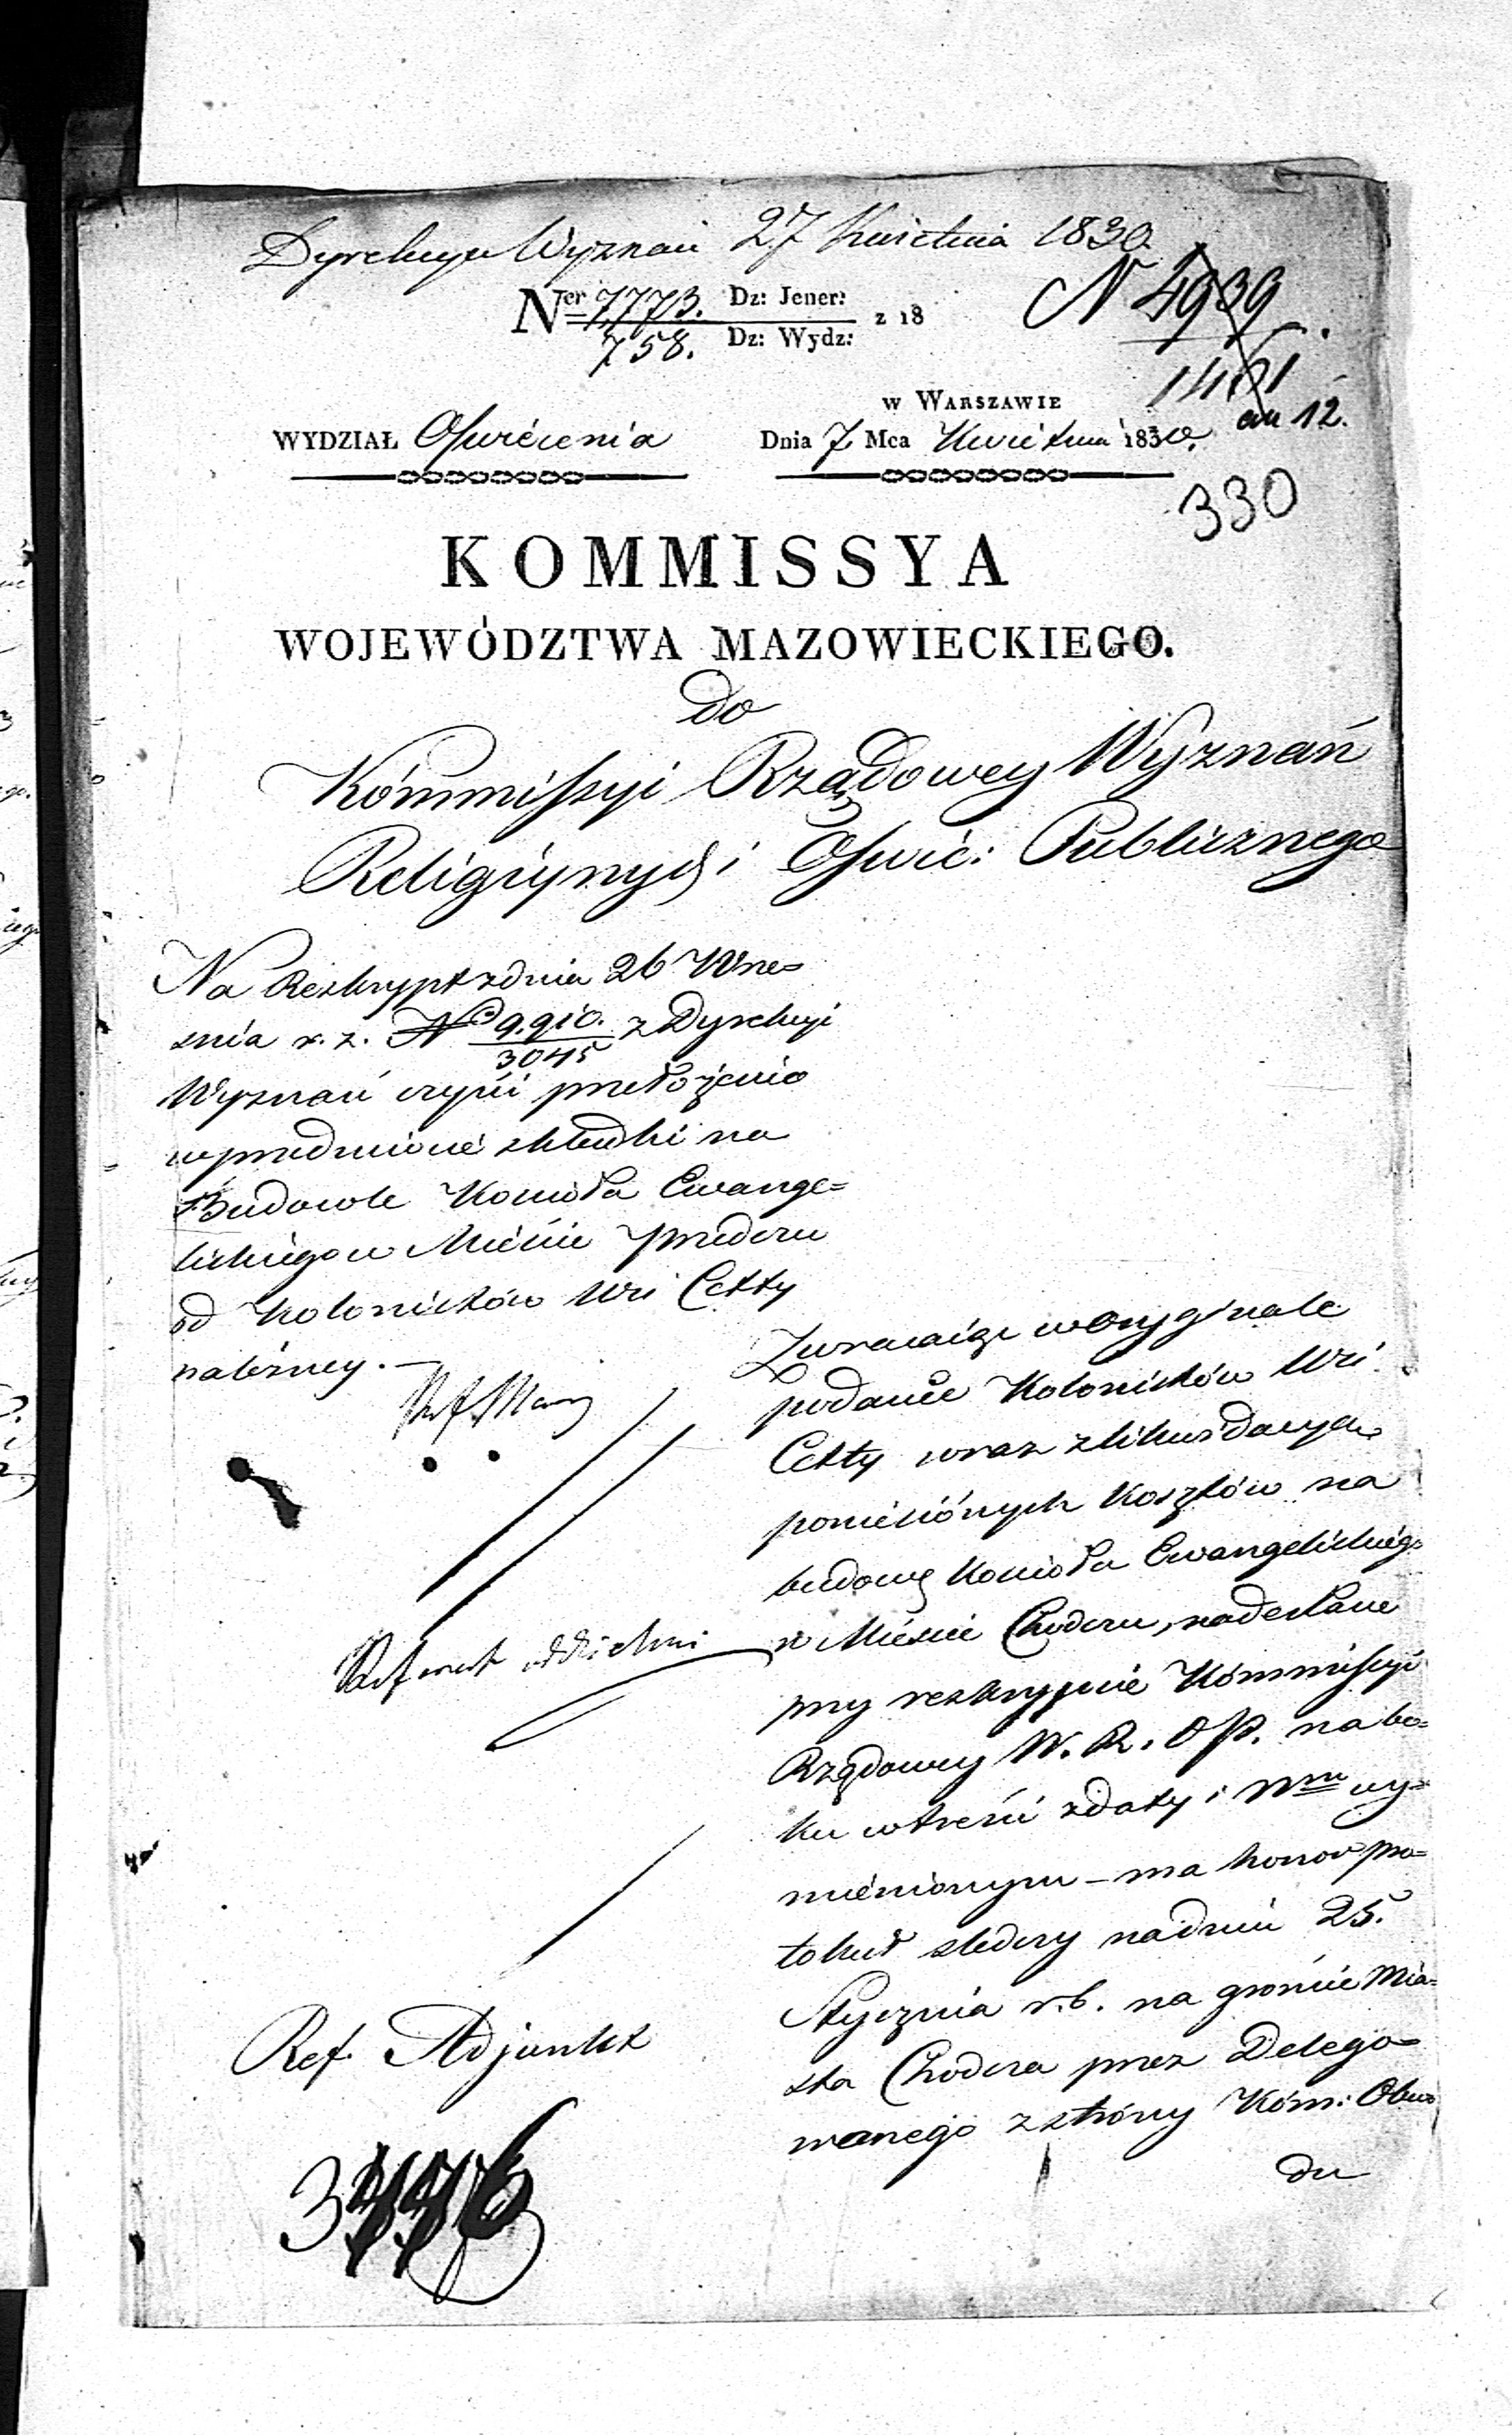 Dyrekcya Wyznań 27 Kwietnia 1830
Ner 7,773. Dz: Jener: z 18
758. Dz: Wydz:
N 4939
1461
au 12.
w Warszawie
WYDZIAŁ Oswiécenia
Dnia 7 Mca Kwietnia 1830.
330
KOMMISSYA
WOJEWÓDZTWA MAZOWIECKIEGO.
do
Kómmissyi Rządowey Wyznań
Religiynych i Oswié: Publicznego
Na Reskrypt z dnia 26 Wrze=
snia r. z. No 9.910. z Dyrekcyi
3045
Wyznań czyni przełożenie
w przedmiocie składki na
Budowle Koscioła Ewange=
lickiego w Mieście
od Kolonistów Wsi Cetty
należney. —
Zwracaiąc w oryginale
podanie Kolonistów Wsi
Cetty wraz z likwidacyą
poniesiónych Kosztów na
budowę Koscioła Ewangelickiego
w Miescie Chodczu, nadesłane
przy reskrypcie Kómmissyi
Rządowey W. R. O P. na bo=
ku w treści z daty i Nru wy=
mienionym – ma honor pro=
tokuł śledczy na dniu 25.
Stycznia r. b. na gróncie Mia=
sta Chodcza przez Delego=
wanego z stróny Kóm: Obwo
du
Ref. Adjunkt